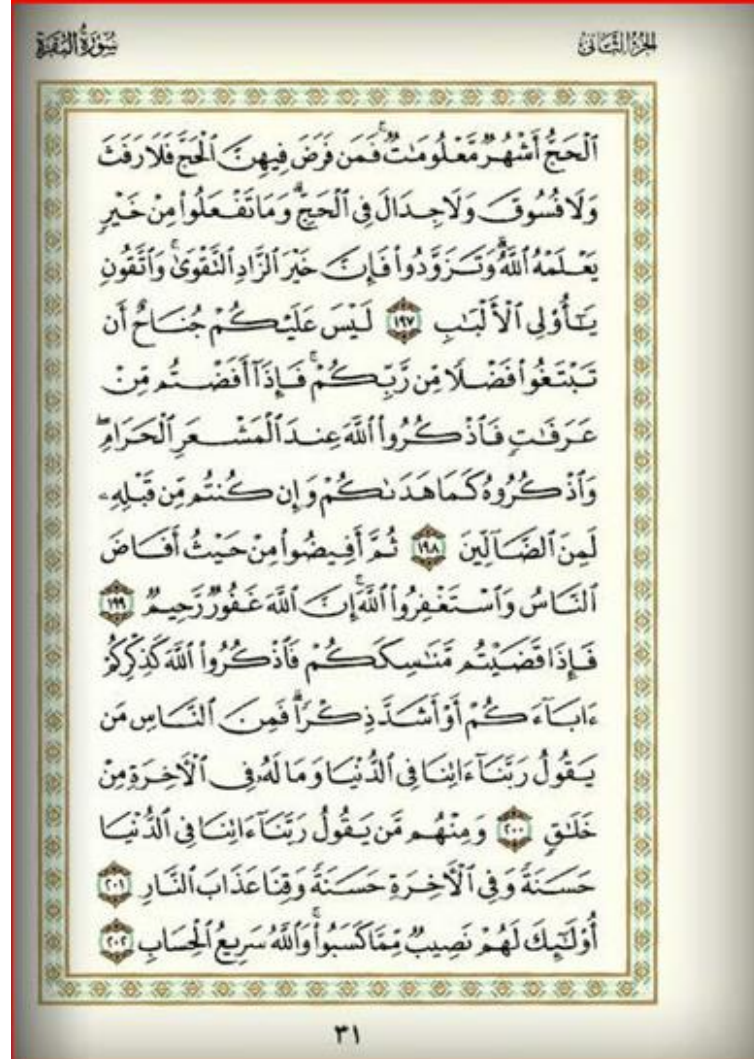 سُورَةُ البَقَرَةِ الجُزْءُ الثَّانِي
ٱلْحَجُّ أَشْهُرٌ مَّعْلُومَٰتٌ ۚ فَمَن فَرَضَ فِيهِنَّ ٱلْحَجَّ فَلَا رَفَثَ
وَلَا فُسُوقَ وَلَا جِدَالَ فِى ٱلْحَجِّ ۗ وَمَا تَفْعَلُوا۟ مِنْ خَيْرٍ
يَعْلَمْهُ ٱللَّهُ ۗ وَتَزَوَّدُوا۟ فَإِنَّ خَيْرَ ٱلزَّادِ ٱلتَّقْوَىٰ ۚ وَٱتَّقُونِ
يَٰٓأُو۟لِى ٱلْأَلْبَٰبِ ١٩٧ لَيْسَ عَلَيْكُمْ جُنَاحٌ أَن
تَبْتَغُوا۟ فَضْلًا مِّن رَّبِّكُمْ ۚ فَإِذَآ أَفَضْتُم مِّنْ
عَرَفَٰتٍ فَٱذْكُرُوا۟ ٱللَّهَ عِندَ ٱلْمَشْعَرِ ٱلْحَرَامِ ۖ
وَٱذْكُرُوهُ كَمَا هَدَىٰكُمْ وَإِن كُنتُم مِّن قَبْلِهِۦ
لَمِنَ ٱلضَّآلِّينَ ١٩٨ ثُمَّ أَفِيضُوا۟ مِنْ حَيْثُ أَفَاضَ
ٱلنَّاسُ وَٱسْتَغْفِرُوا۟ ٱللَّهَ ۚ إِنَّ ٱللَّهَ غَفُورٌ رَّحِيمٌ ١٩٩
فَإِذَا قَضَيْتُم مَّنَٰسِكَكُمْ فَٱذْكُرُوا۟ ٱللَّهَ كَذِكْرِكُمْ
ءَابَآءَكُمْ أَوْ أَشَدَّ ذِكْرًا ۗ فَمِنَ ٱلنَّاسِ مَن
يَقُولُ رَبَّنَآ ءَاتِنَا فِى ٱلدُّنْيَا وَمَا لَهُۥ فِى ٱلْءَاخِرَةِ مِنْ
خَلَٰقٍ ٢٠٠ وَمِنْهُم مَّن يَقُولُ رَبَّنَآ ءَاتِنَا فِى ٱلدُّنْيَا
حَسَنَةً وَفِى ٱلْءَاخِرَةِ حَسَنَةً وَقِنَا عَذَابَ ٱلنَّارِ ٢٠١
أُو۟لَٰٓئِكَ لَهُمْ نَصِيبٌ مِّمَّا كَسَبُوا۟ ۚ وَٱللَّهُ سَرِيعُ ٱلْحِسَابِ ٢٠٢
٣١